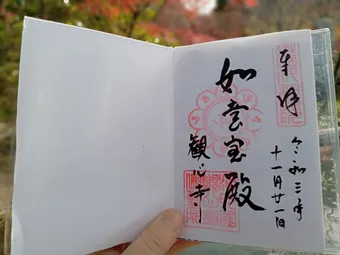 奉拝
令和三年
十一月廿一日
如意宝殿
観心寺